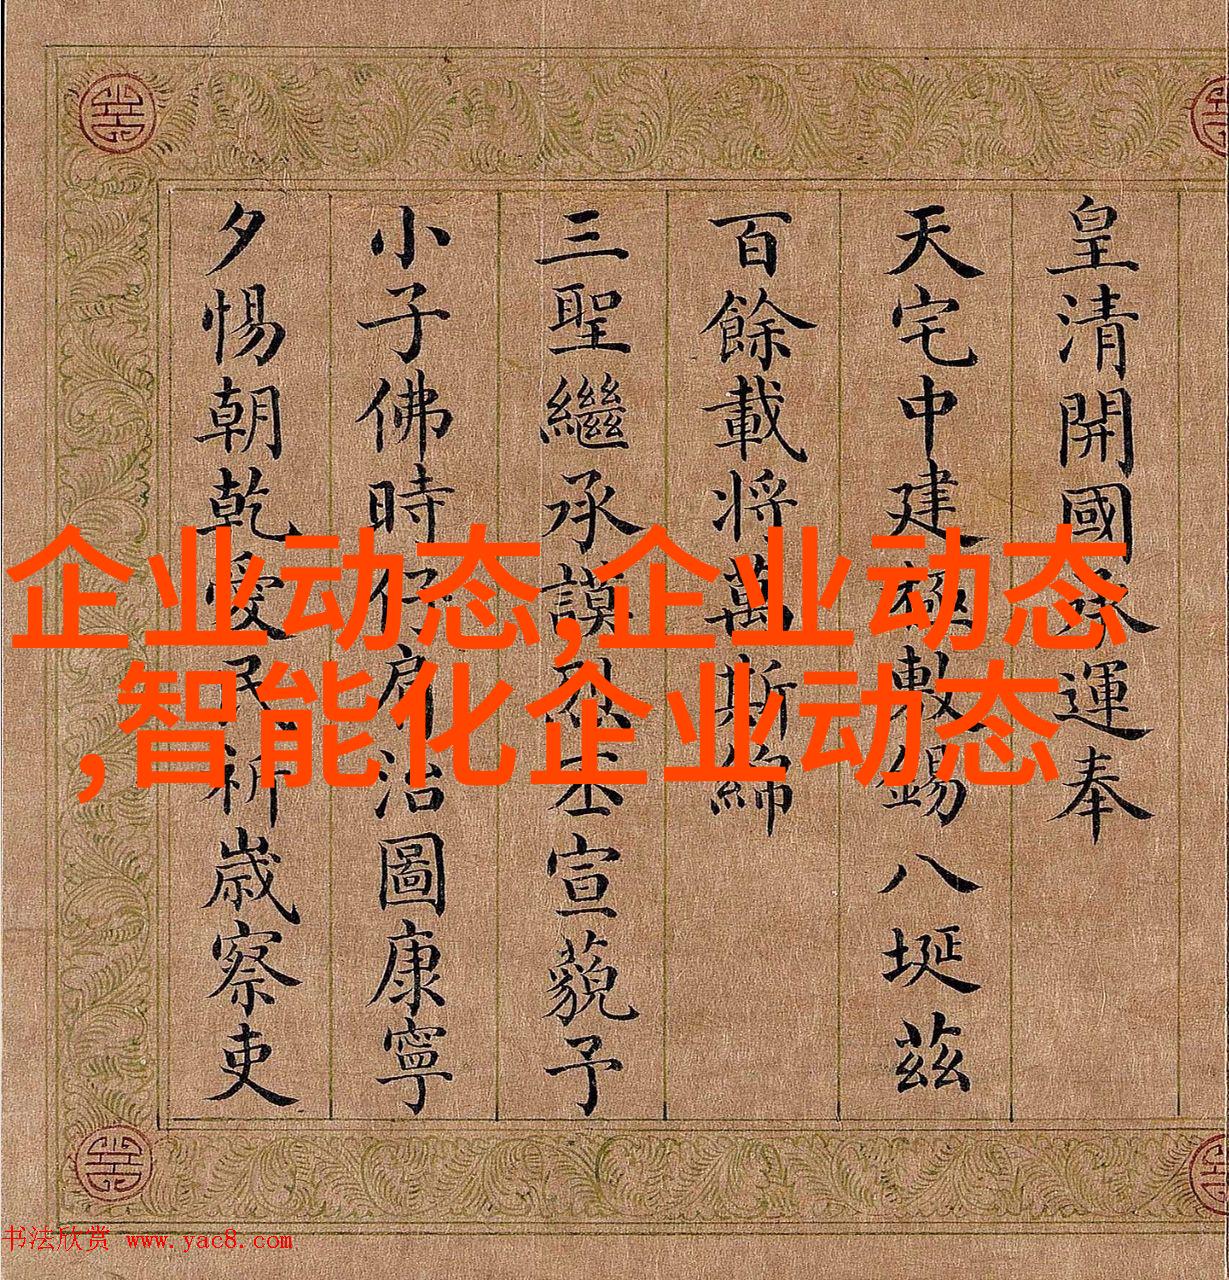 皇清開國承運奉
天宅中建極敷錫八埏茲
百餘載將萬斯綿
三聖繼承謨烈丕宣藐予
小子佛時仔肩治圖康寧
夕惕朝乾愛民祈歲察吏
企业动态,企业动态
,智能化企业动态
书法欣赏 www.yac8.com